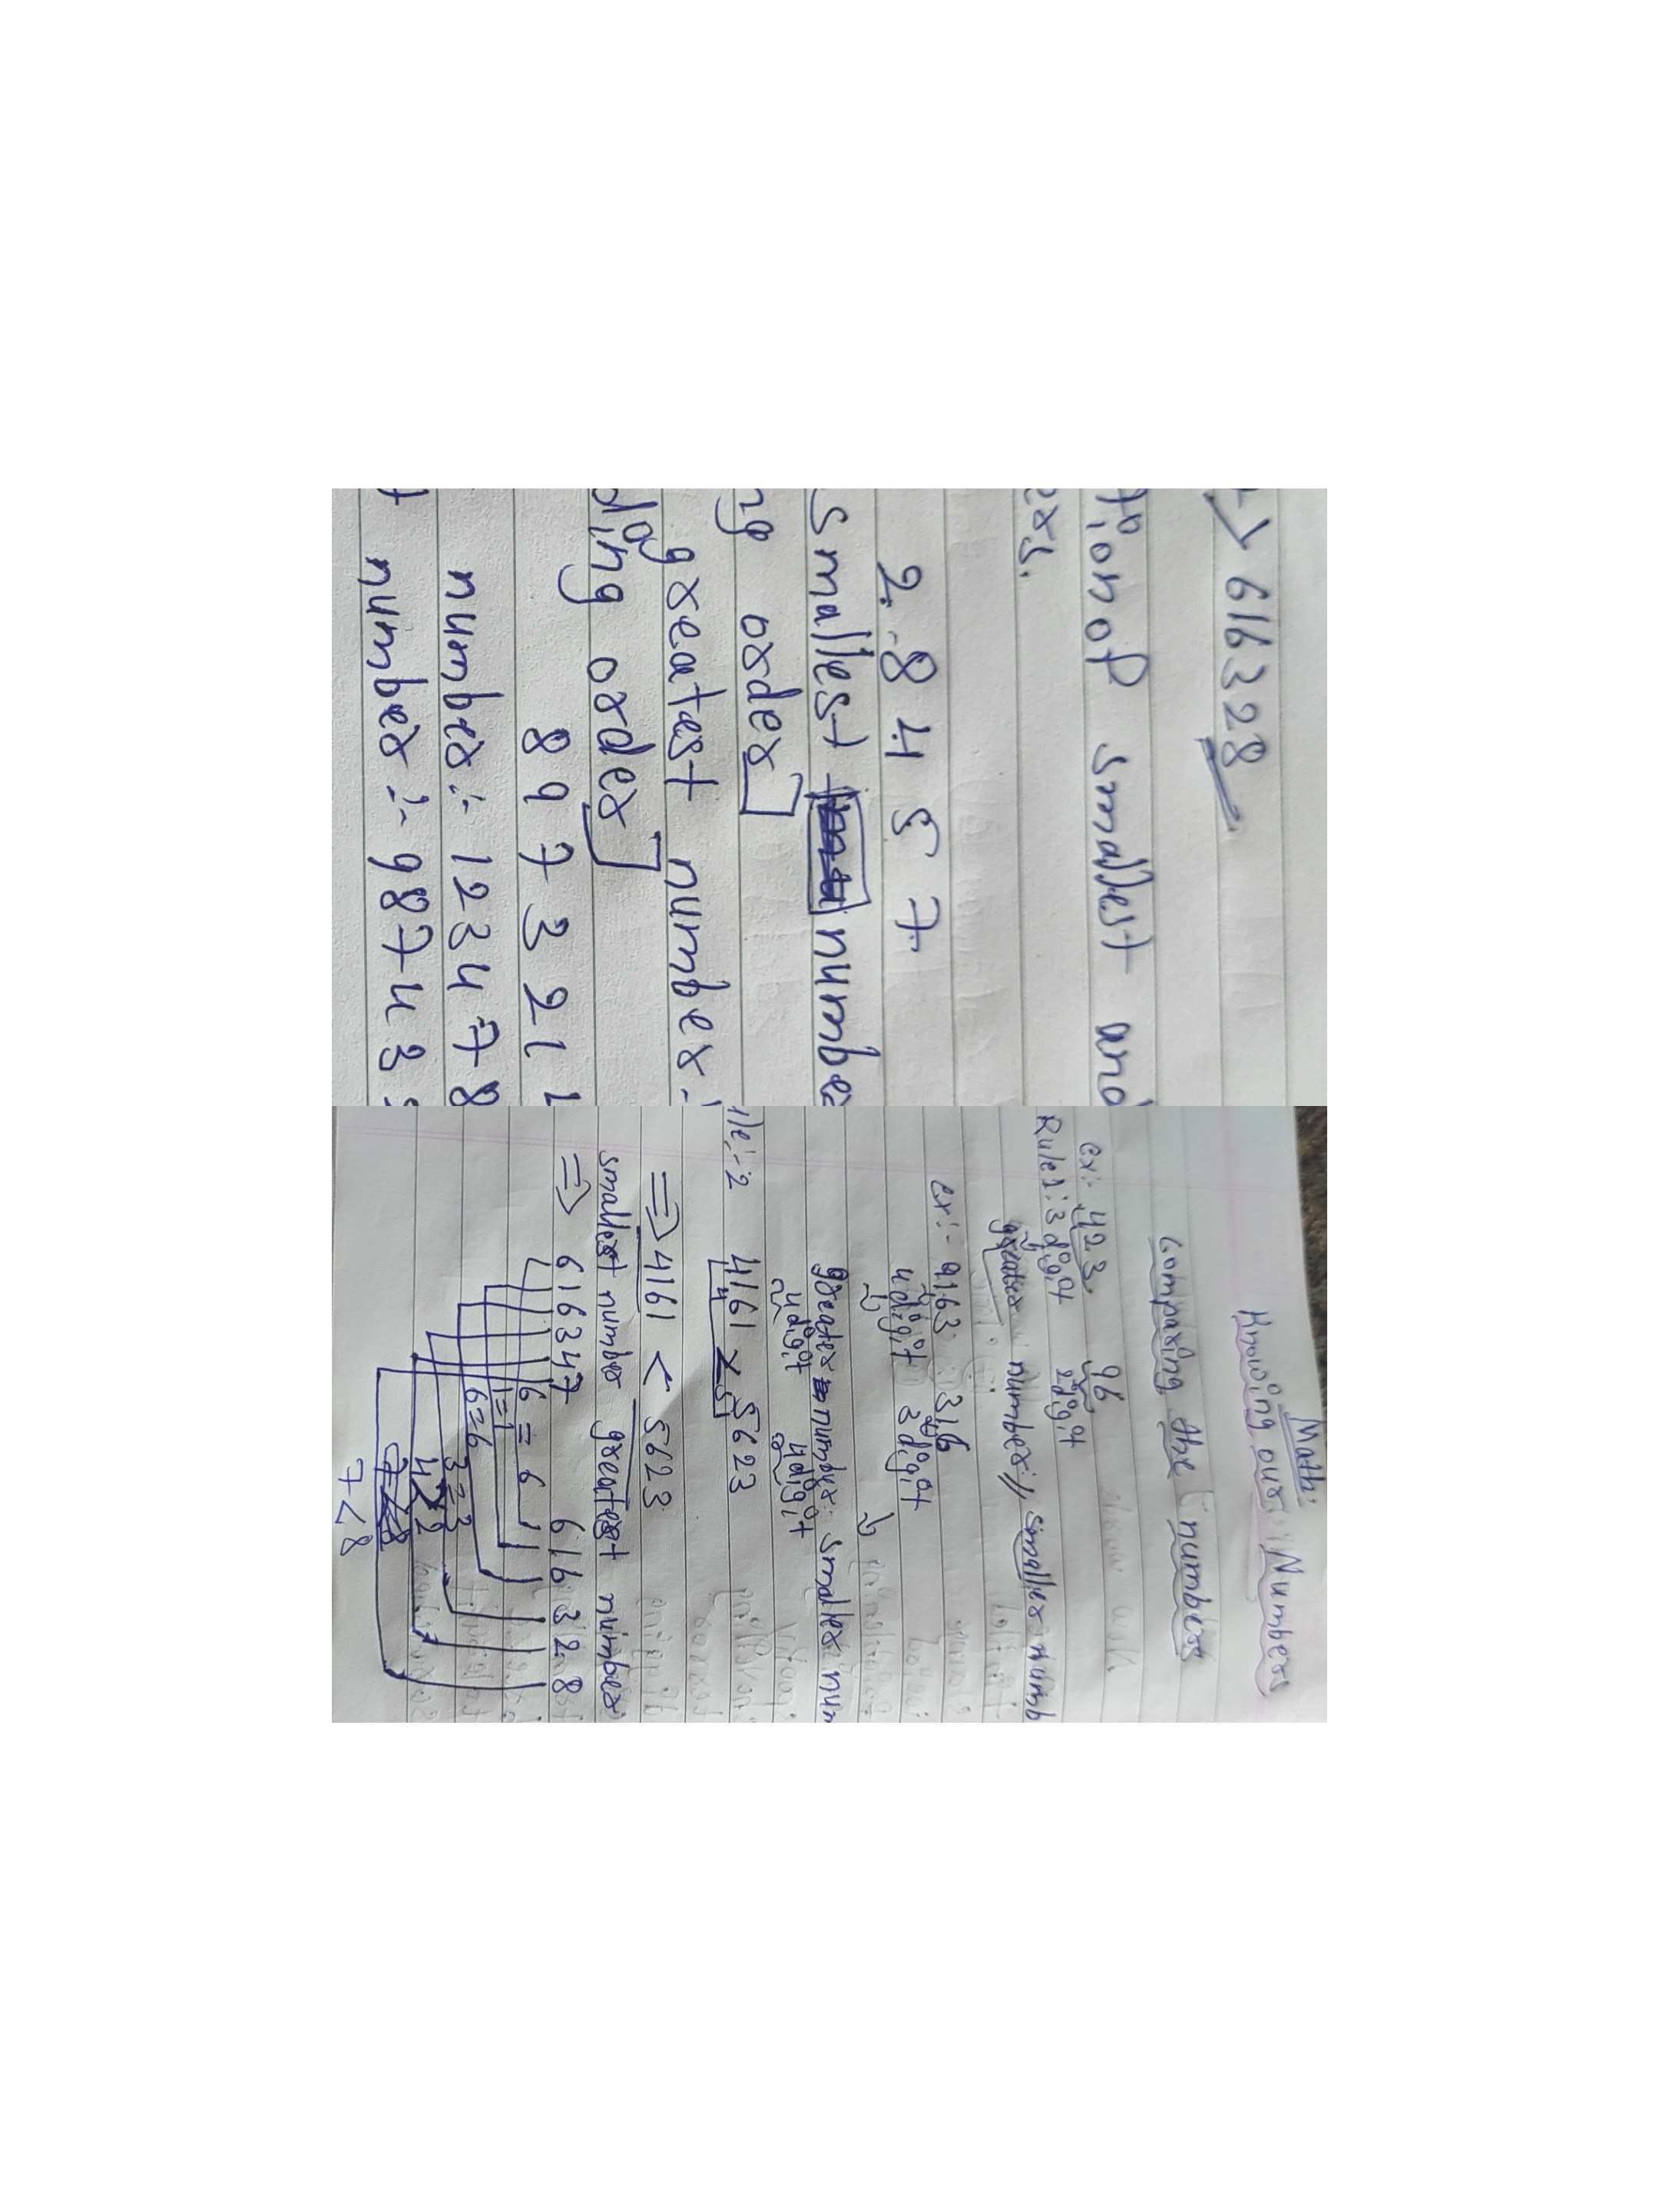 > 616328
tion of smallest and
exs.
2 8 4 5 7
smallest number
ng order]
greatest number.
ding order]
8 9 7 3 2 1
number :- 123478
number :- 98743
Math:
Knowing our Numbers
Comparing the numbers
ex:- 423 96
Rule 1:- 3 digit 2 digit
greater number // smaller numb
ex:- 9163 316
4 digit 3 digit
greater number: smaller num
4 digit 4 digit
ule:-2 4161 5623
4 5
=> 4161 < 5623
smallest number greatest number
=> 616347 616328
6 = 6
1 = 1
6 = 6
3 = 3
4 > 2
7 < 8
7 < 8